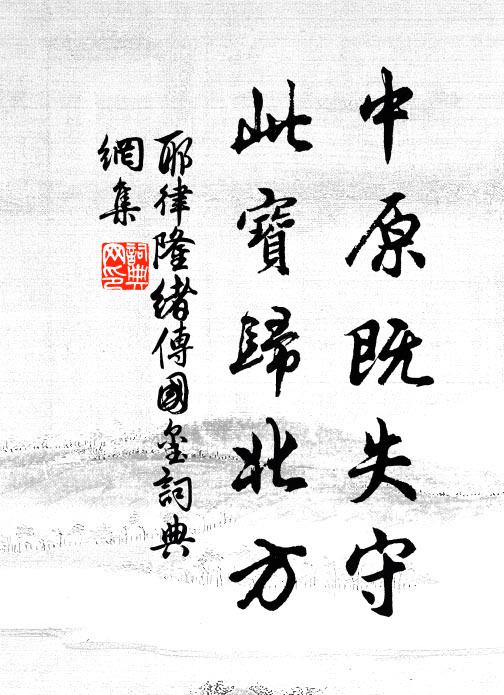 中原既失守
此寶歸北方
耶律隆緒傳國璽詞典
網集
詞典
网印